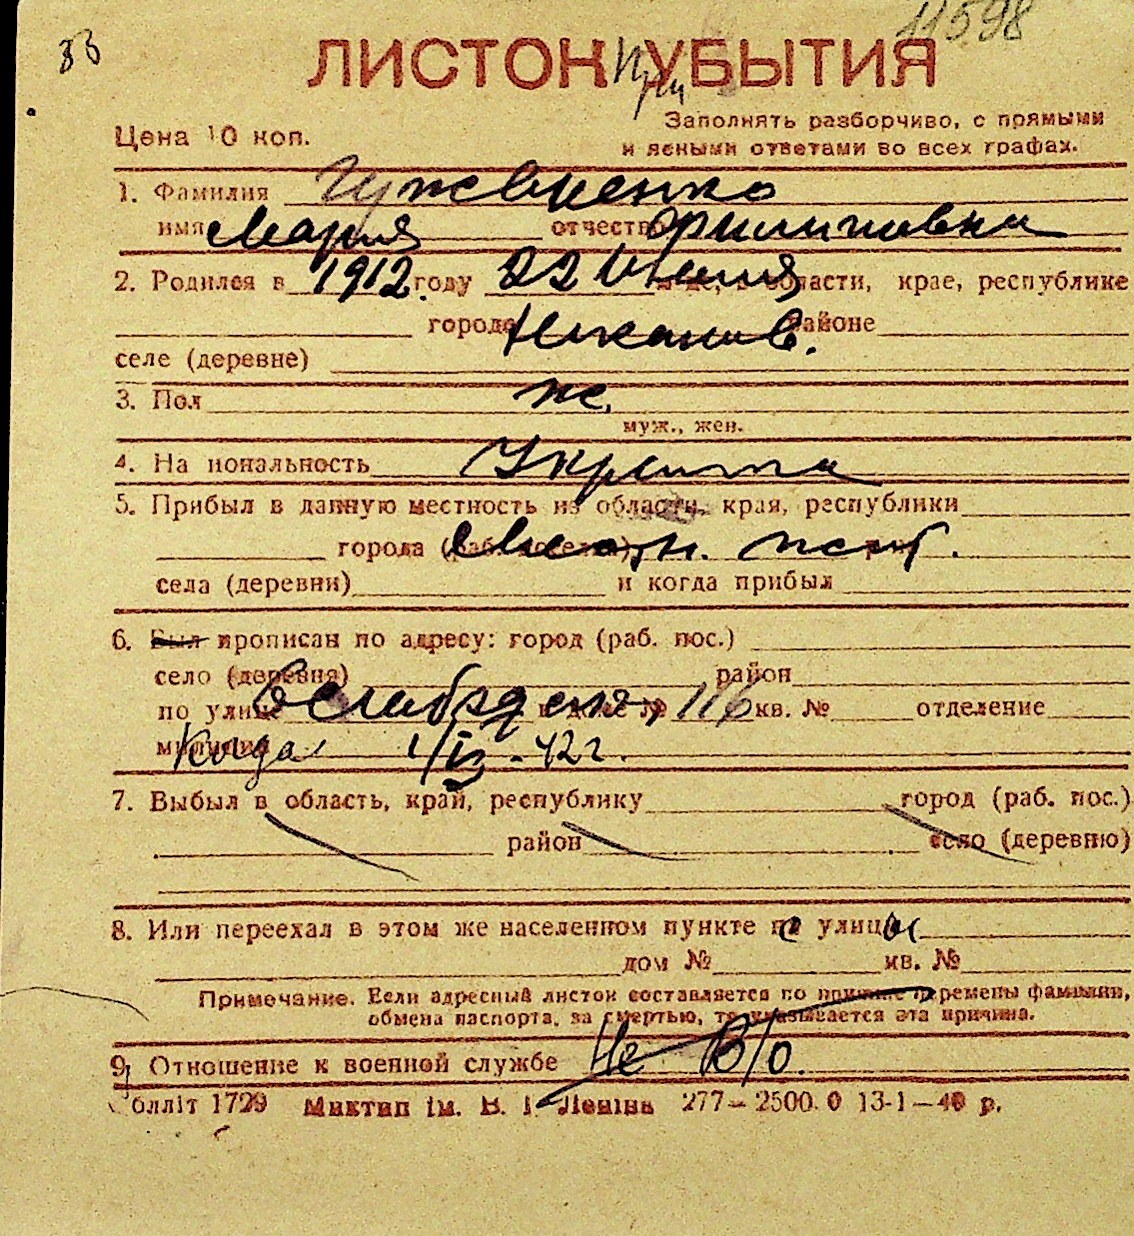 33
11598
ЛИСТОК УБЫТИЯ
При
Цена 10 коп.
Заполнять разборчиво, с прямыми
и ясными ответами во всех графах.
1. Фамилия
имя Мария отчество Филиповна
2. Родился в 1912 году 22 Июня области, крае, республике
городе Николаев. районе
селе (деревне)
3. Пол ж.
муж., жен.
4. На иональность Украинка
5. Прибыл в данную местность из области, края, республики
города Местн. жит.
села (деревни) и когда прибыл
6. Был прописан по адресу: город (раб. пос.)
село (деревня) район
по улице Слободская, 116 кв. № отделение
Когда 1/IX - 42 г.
7. Выбыл в область, край, республику город (раб. пос.)
район село (деревню)
8. Или переехал в этом же населенном пункте с улицы
дом № кв. №
Примечание. Если адресный листок составляется по причине перемены фамилии,
обмена паспорта, за смертью, то указывается эта причина.
9. Отношение к военной службе Не В/о.
облліт 1729 Миктип ім. В. І. Леніна 277 — 2500. 0 13-1 — 40 р.